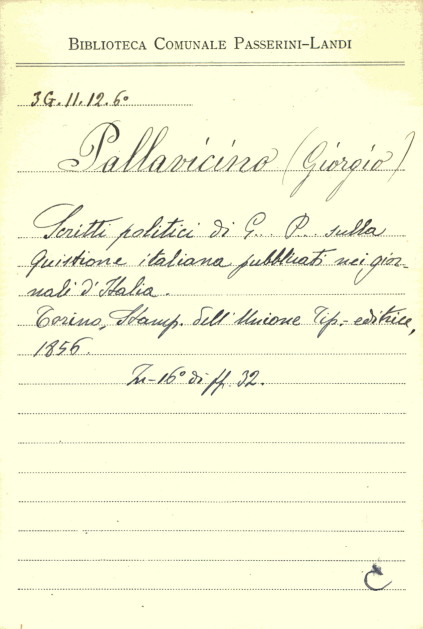 BIBLIOTECA COMUNALE PASSERINI-LANDI
3G.11.12.6°
Pallavicino (Giorgio)
Scritti politici di G. P. sulla
quistione italiana pubblicati nei gior-
nali d'Italia.
Torino, Stamp. dell'Unione Tip.-editrice,
1856.
In-16° di pp. 32.
C